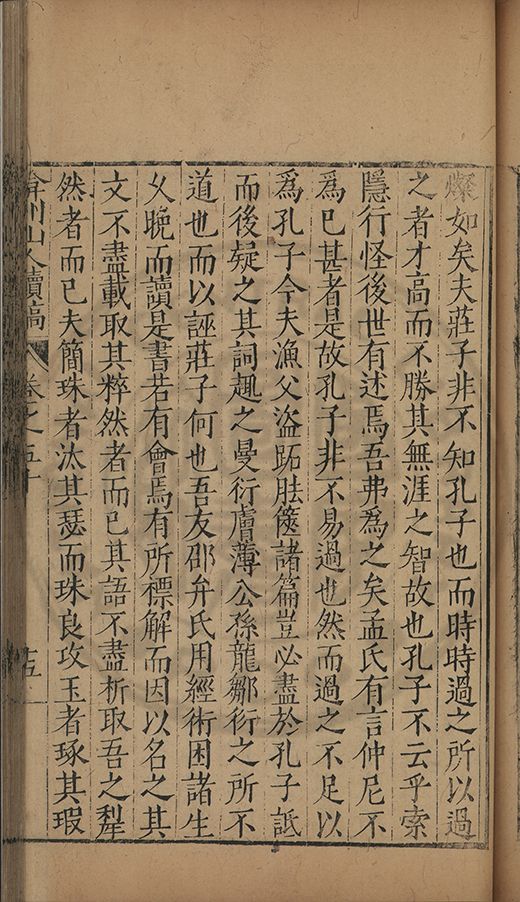 燦如矣夫莊子非不知孔子也而時時過之所以過
之者才高而不勝其無涯之智故也孔子不云乎索
隱行怪後世有述焉吾弗為之矣孟氏有言仲尼不
為已甚者是故孔子非不易過也然而過之不足以
為孔子今夫漁父盜跖胠篋諸篇豈必盡於孔子詆
而後疑之其詞趣之曼衍膚薄公孫龍鄒衍之所不
道也而以誣莊子何也吾友邵弁氏用經術困諸生
乆晚而讀是書若有會焉有所摽解而因以名之其
文不盡載取其粹然者而已其語不盡析取吾之犁
然者而已夫簡珠者汰其瑟而珠良攻玉者琢其瑕
弇州山人讀稿 卷之五十 十五